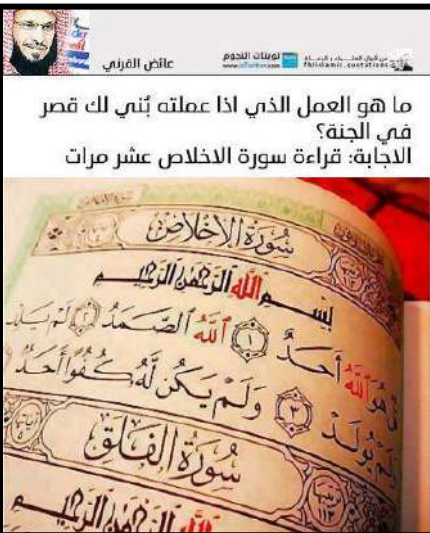 عائض القرني
تويتات النجوم
ما هو العمل الذي اذا عملته بُني لك قصر
في الجنة؟
الاجابة: قراءة سورة الاخلاص عشر مرات
سُورَةُ الإِخْلَاصِ
بِسْمِ اللَّهِ الرَّحْمَٰنِ الرَّحِيمِ
هُوَ اللَّهُ أَحَدٌ ١ اللَّهُ الصَّمَدُ ٢ لَمْ يَلِدْ
وَلَمْ يُولَدْ ٣ وَلَمْ يَكُن لَّهُ كُفُوًا أَحَدٌ
سُورَةُ الْفَلَقِ
اللَّهِ الرَّحْمَٰنِ الرَّحِيمِ